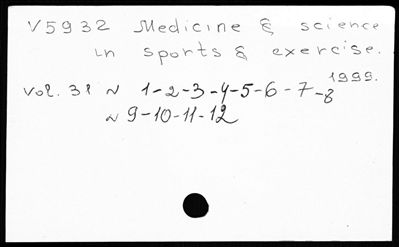 V5932 Medicine & science
in sports & exercise.
1999.
vol. 31 N 1-2-3-4-5-6-7-8
N 9-10-11-12